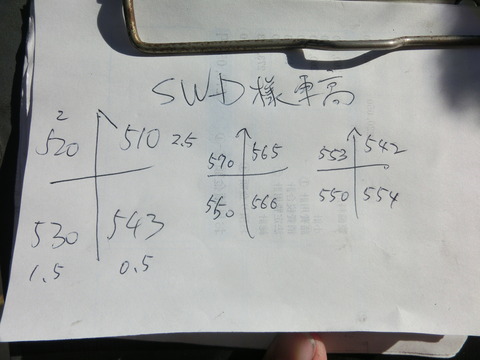 SWD様車高
2
520 510 2.5
530 543
1.5 0.5
570 565
550 566
553 542
550 554